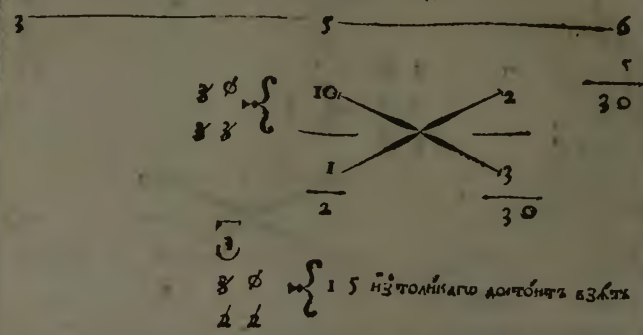 3 5 6
5
30
3 0 10 2
3 3
1 3
2 30
3 0 1 5 и҆з̾ толи́каго досто́итъ взѧ́ть
2 2